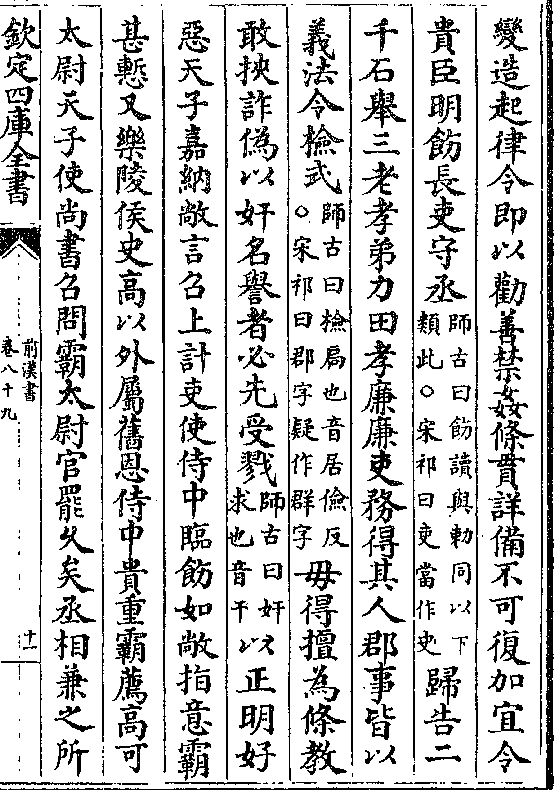 變造起律令即以勸善禁姦條貫詳備不可復加宜令
貴臣明飭長吏守丞師古曰飭讀與勅同以下類此○宋祁曰吏當作史歸告二
千石舉三老孝弟力田孝廉廉吏務得其人郡事皆以
義法令檢式師古曰檢局也音居儉反○宋祁曰郡字疑作群字毋得擅為條教
敢挾詐偽以奸名譽者必先受戮師古曰奸求也音干以正明好
惡天子嘉納敞言召上計吏使侍中臨飭如敞指意霸
甚慙又樂陵侯史高以外屬舊恩侍中貴重霸薦高可
太尉天子使尚書召問霸太尉官罷久矣丞相兼之所
欽定四庫全書
前漢書
卷八十九
十一